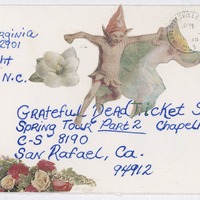 rginia
2901
ght
N.C.
Grateful Dead Ticket S
Spring Tour Part 2 Chapel
C-S 8190
San Rafael, Ca.
94912